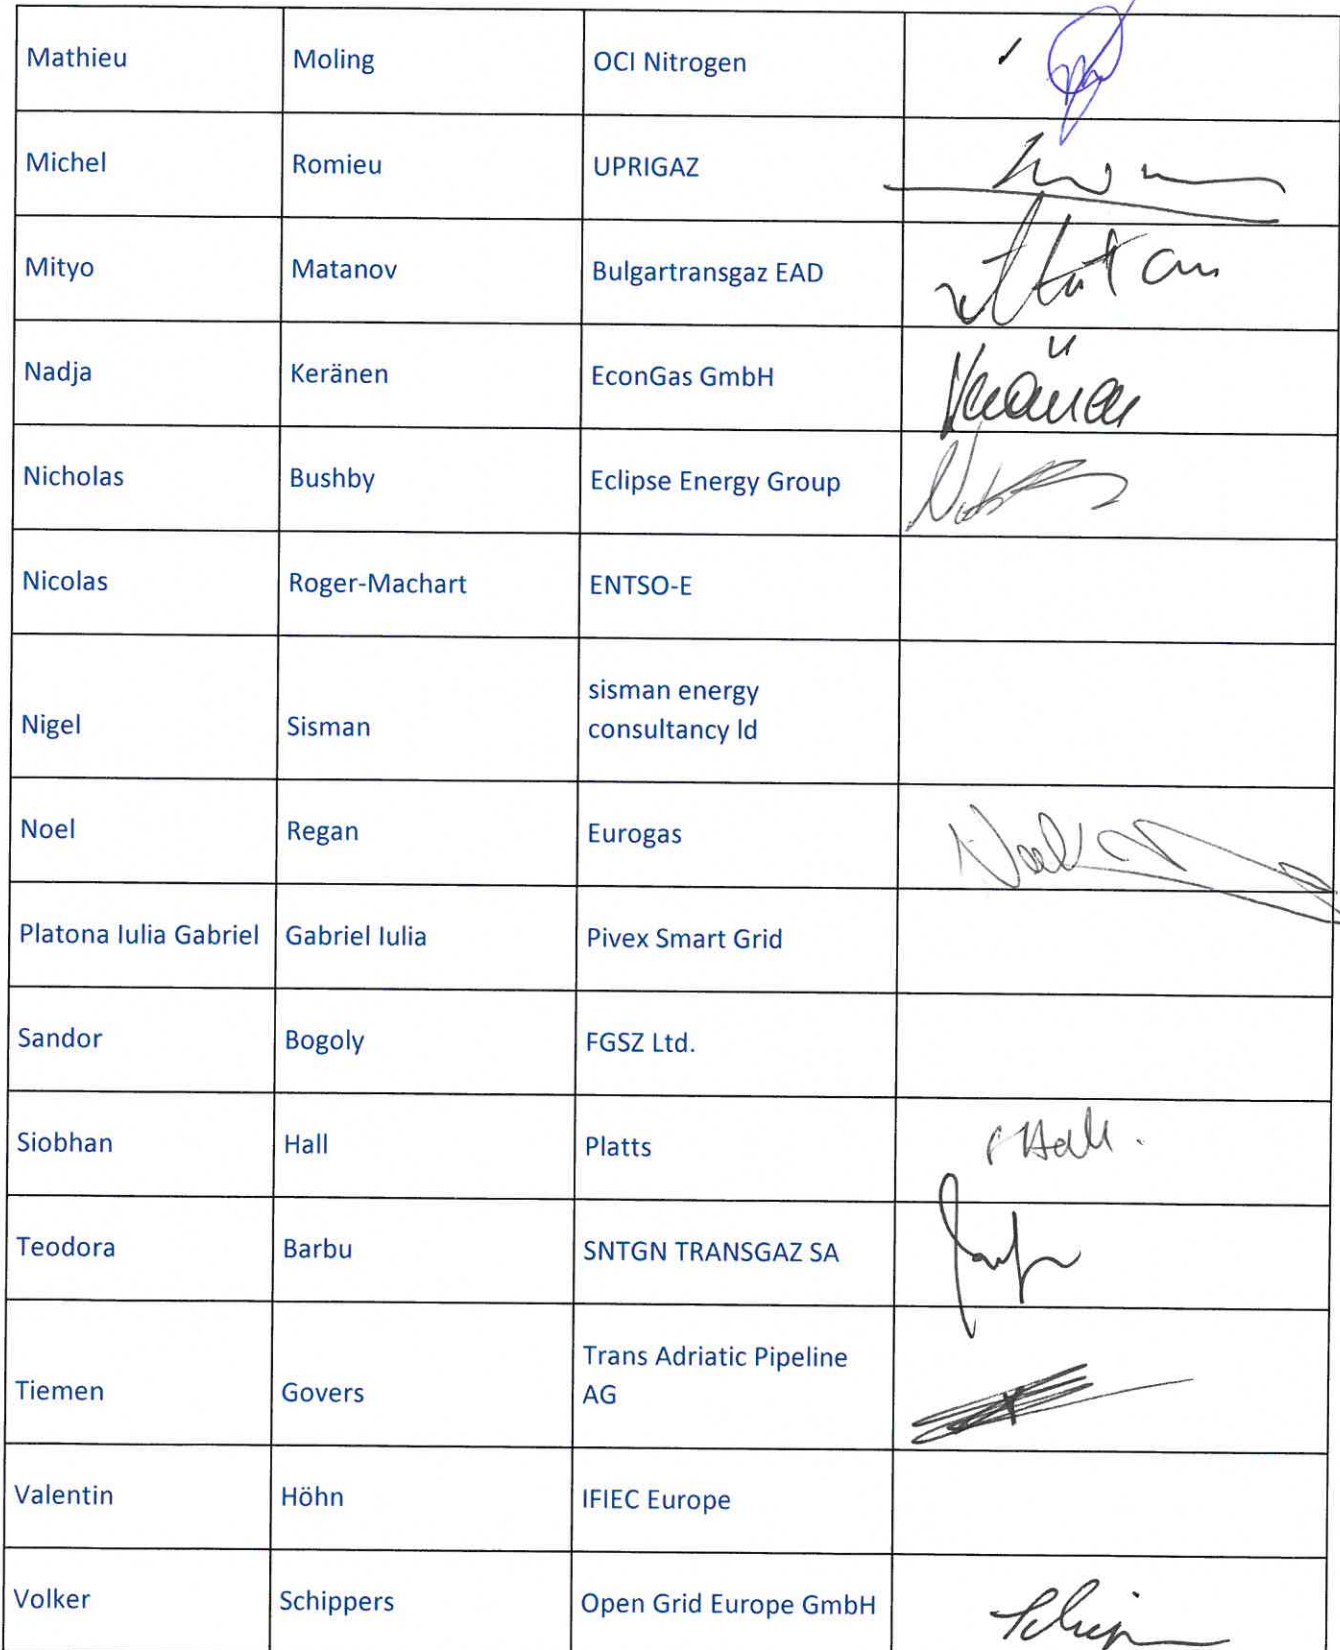 Mathieu Moling OCI Nitrogen
Michel Romieu UPRIGAZ
Mityo Matanov Bulgartransgaz EAD
Nadja Keränen EconGas GmbH
Keränen
Nicholas Bushby Eclipse Energy Group
Nicolas Roger-Machart ENTSO-E
sisman energy
Nigel Sisman consultancy ld
Noel Regan Eurogas
Noel
Platona Iulia Gabriel Gabriel Iulia Pivex Smart Grid
Sandor Bogoly FGSZ Ltd.
Siobhan Hall Platts
SHall.
Teodora Barbu SNTGN TRANSGAZ SA
Trans Adriatic Pipeline
Tiemen Govers AG
Valentin Höhn IFIEC Europe
Volker Schippers Open Grid Europe GmbH